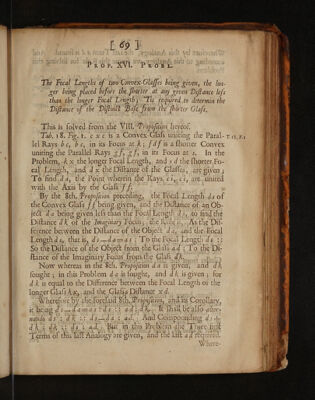 [ 69 ]
PROP. XVI. PROBL.
The Focal Lengths of two Convex-Glasses being given, the lon-
ger being placed before the shorter at any given Distance less
than the longer Focal Length; 'Tis required to determin the
Distance of the Distinct Base from the shorter Glass.
This is solved from the VIII. Proposition hereof.
Tab. 18. Fig. 1. is a Convex Glass uniting the Paral-
lel Rays in its Focus at k; is a shorter Convex
uniting the Parallel Rays in its Focus at In the
Problem, the longer Focal Length, and the shorter Fo-
cal Length, and the Distance of the Glasses, are given;
To find the Point wherein the Rays are united
with the Axis by the Glass
By the 8th. Proposition preceding, the Focal Length of
the Convex Glass being given, and the Distance of an Ob-
ject being given less than the Focal Length to find the
Distance of the Imaginary Focus; the Rule is, As the Dif-
ference between the Distance of the Object and the Focal
Length that is, To the Focal Length ::
So the Distance of the Object from the Glass : To the Di-
stance of the Imaginary Focus from the Glass dk.
Now whereas in the 8th. Proposition is given, and dk
sought; in this Problem is sought, and dk is given; for
dk is equal to the Difference between the Focal Length of the
longer Glass and the Glasses Distance
Wherefore by the foresaid 8th. Proposition, and its Corollary,
it being It shall be also alter-
And Compounding
But in this Problem the Three first
Terms of this last Analogy are given, and the last required.
Where-